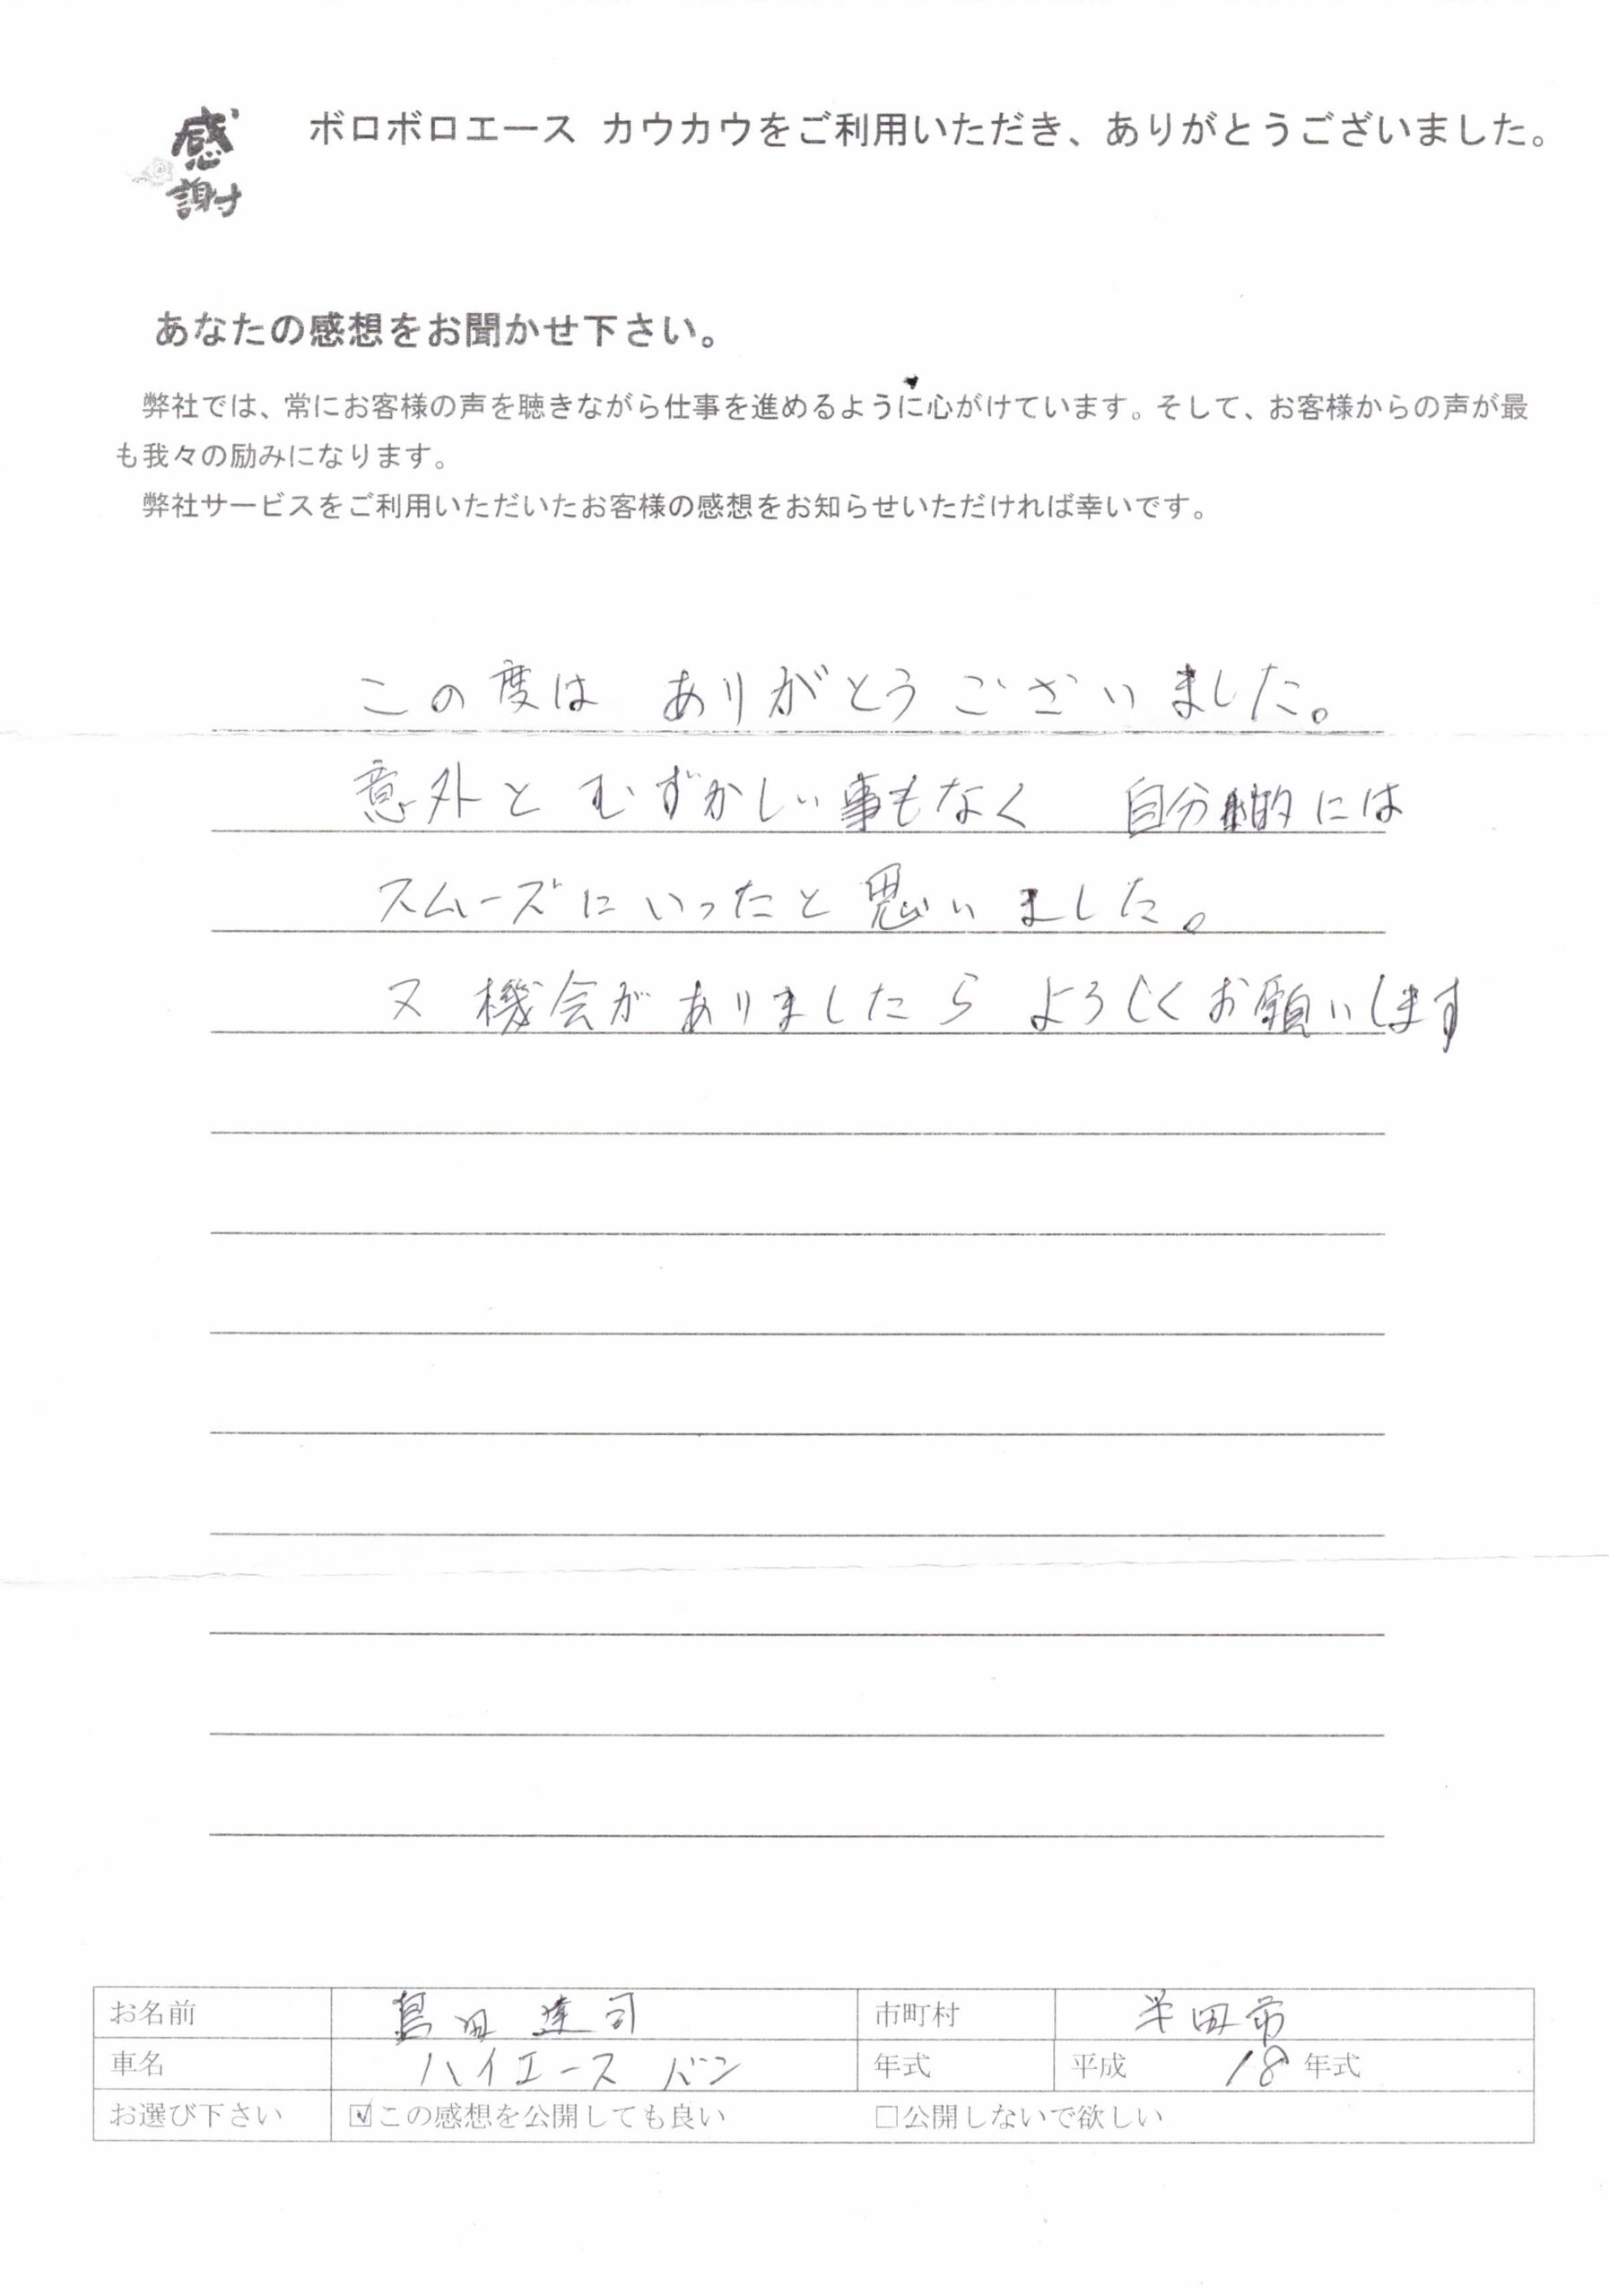 感謝
ボロボロエース カウカウをご利用いただき、ありがとうございました。
あなたの感想をお聞かせ下さい。
弊社では、常にお客様の声を聴きながら仕事を進めるように心がけています。そして、お客様からの声が最
も我々の励みになります。
弊社サービスをご利用いただいたお客様の感想をお知らせいただければ幸いです。
この度は ありがとうございました。
意外とむずかしい事もなく 自分的には
スムーズにいったと思いました。
又 機会がありましたら よろしくお願いします
お名前 島田 達司 市町村 半田市
車名 ハイエース バン 年式 平成 18 年式
お選び下さい ☑この感想を公開しても良い □公開しないで欲しい